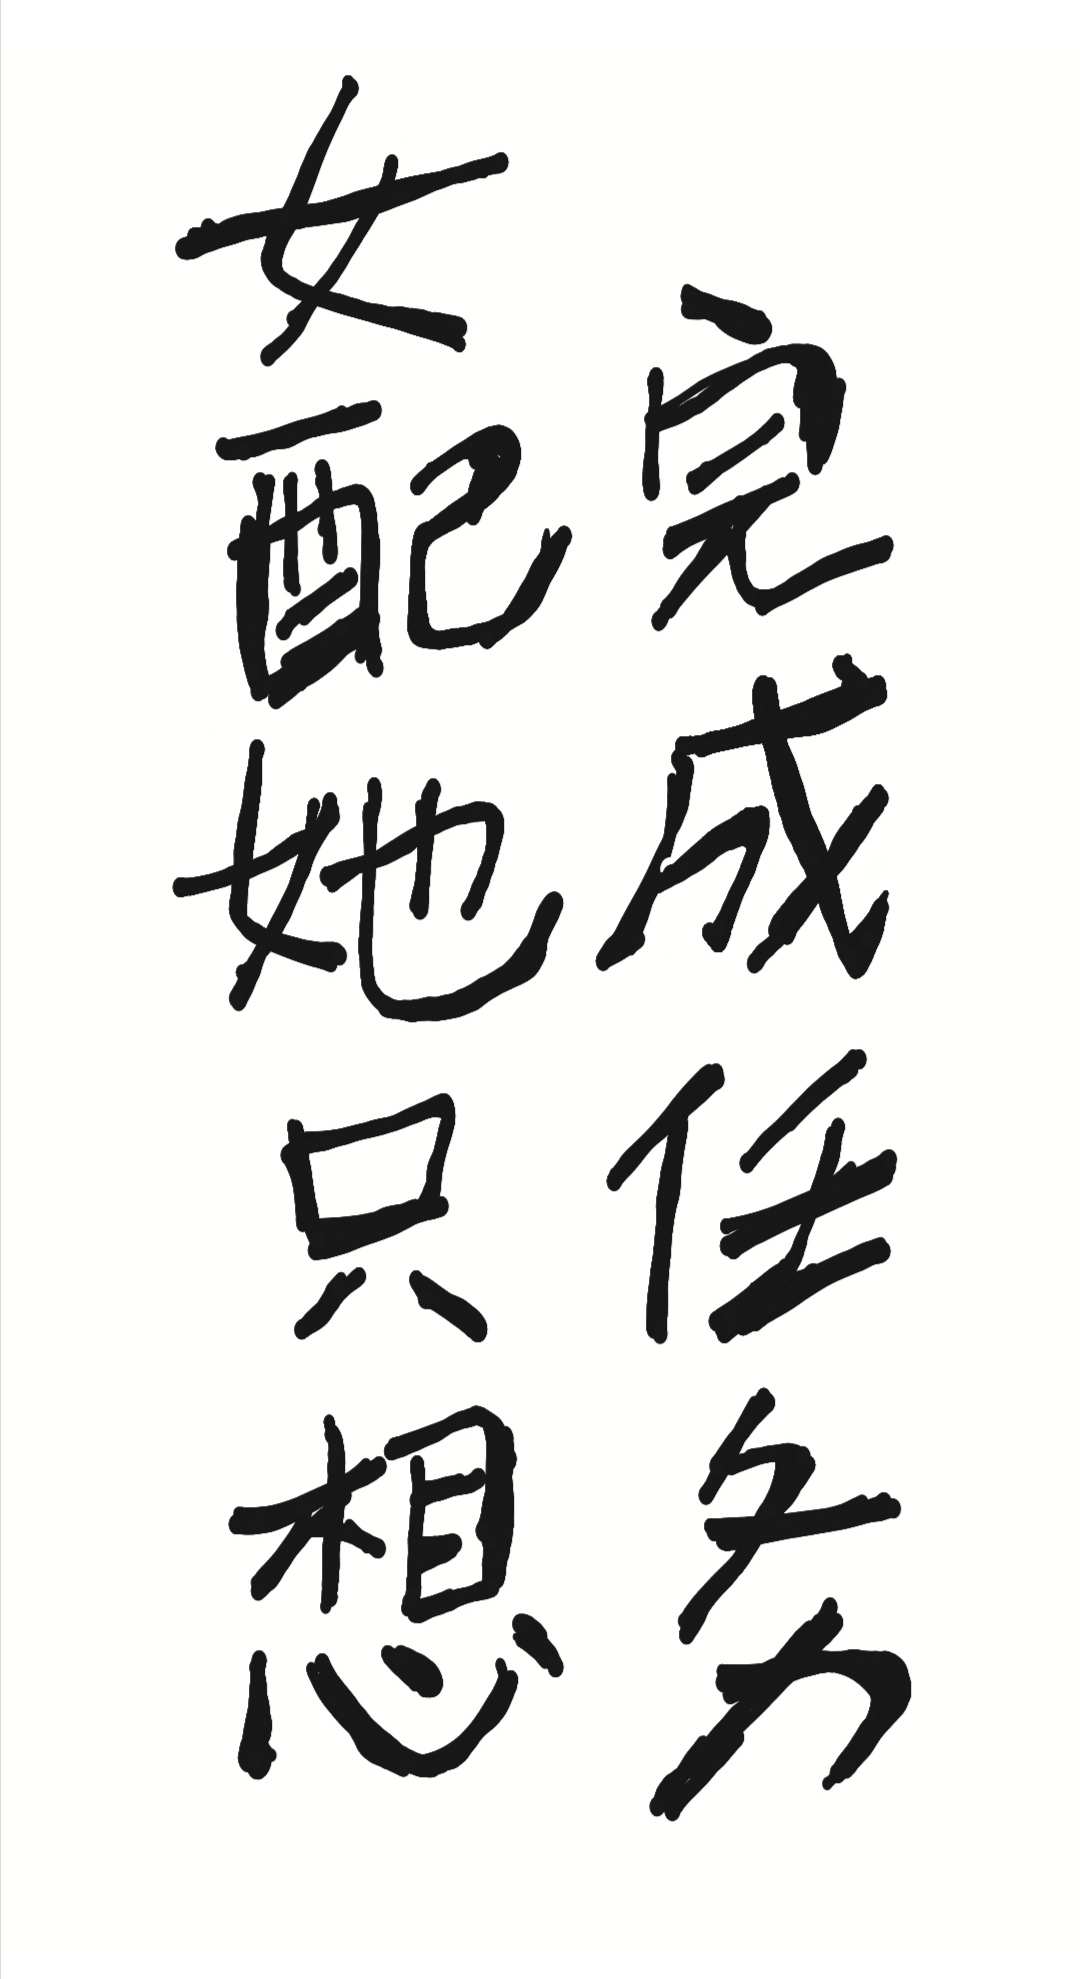 女配她只想
完成任务